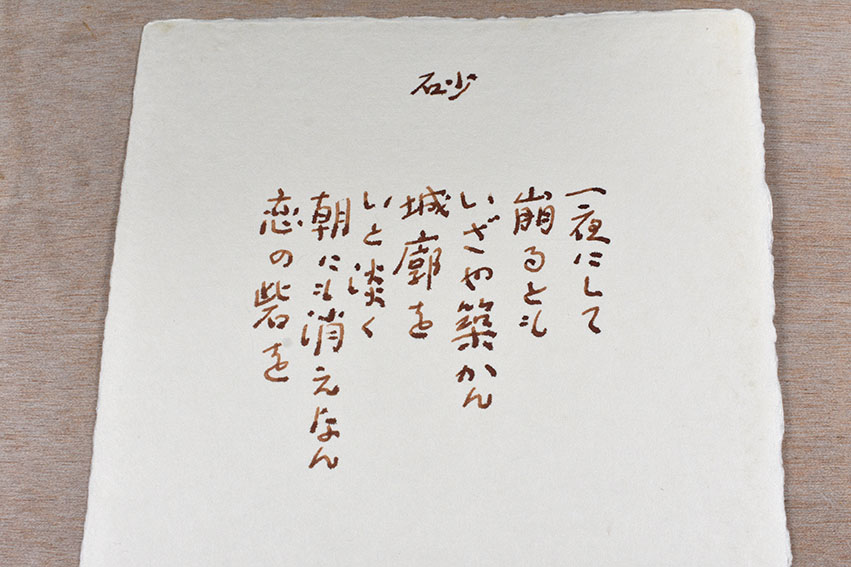 砂
一夜にして
崩るとも
いざや築かん
城廓を
いと淡く
朝にも消えなん
恋の砦を